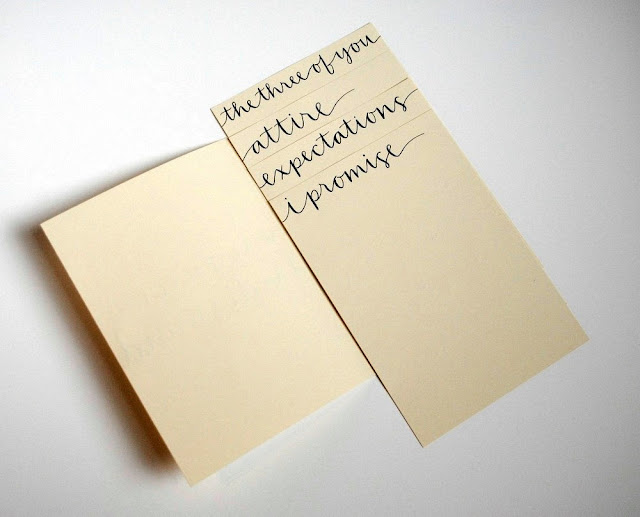 the three of you
attire
expectations
i promise